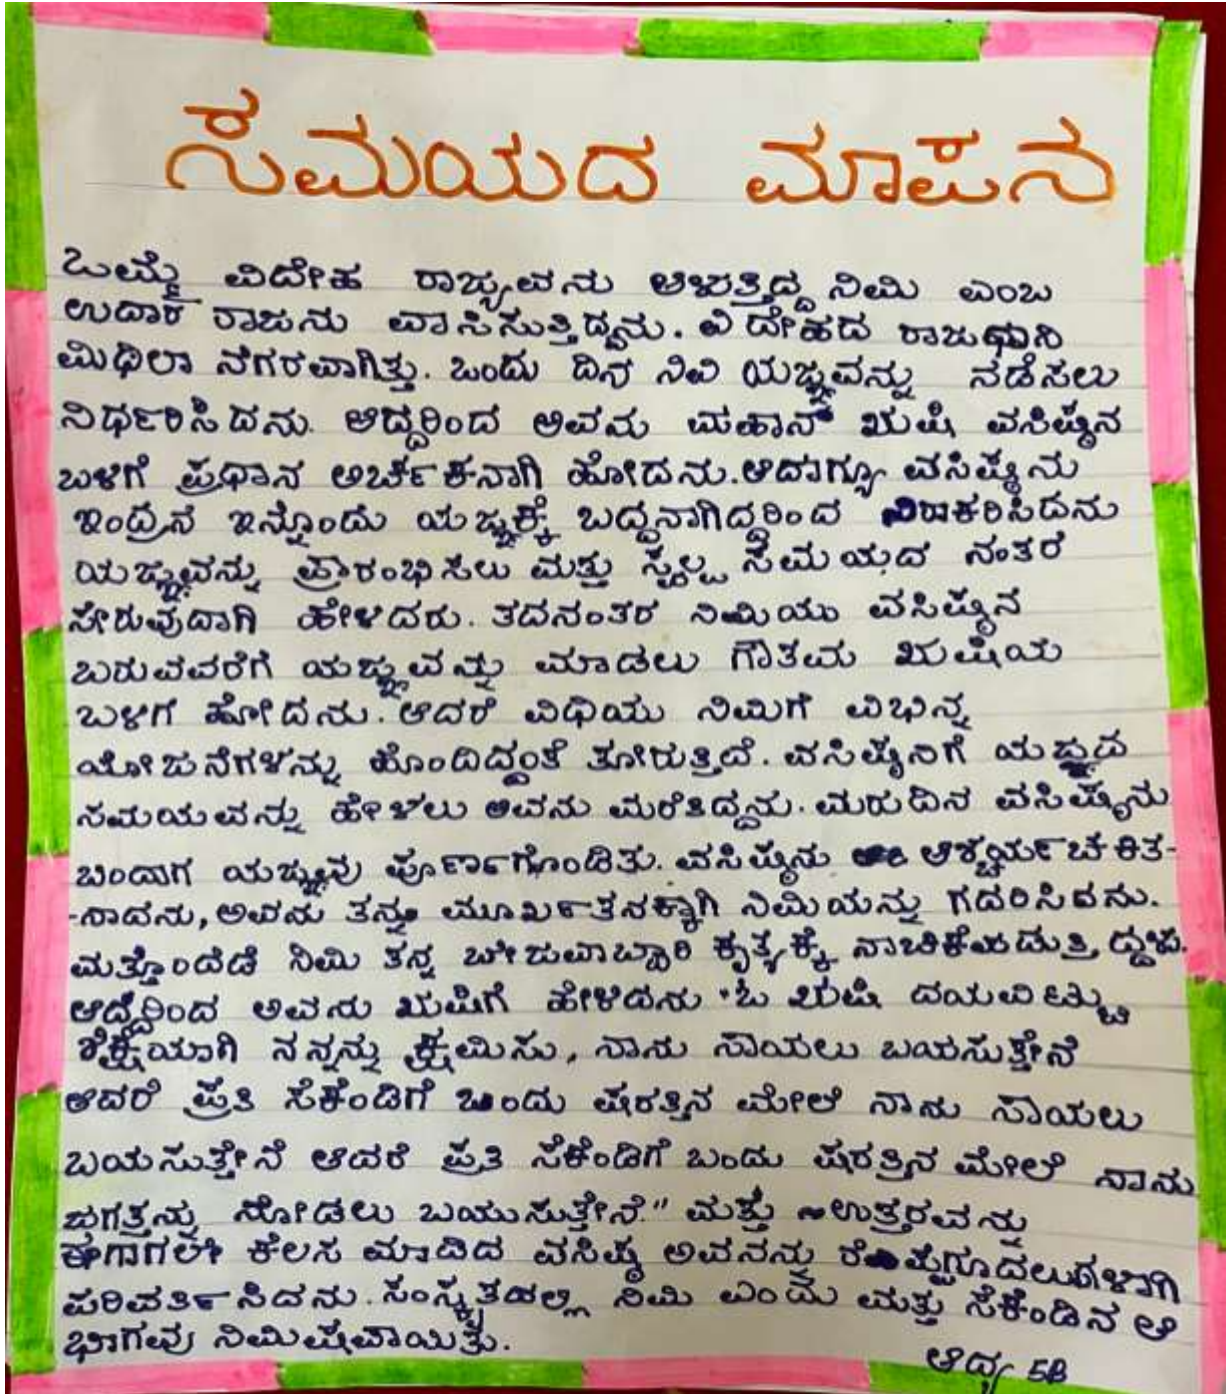 ಸಮಯದ ಮಾಪನ
ಒಮ್ಮೆ ವಿದೇಹ ರಾಜ್ಯವನು ಆಳುತ್ತಿದ್ದ ನಿಮಿ ಎಂಬ
ಉದಾರ ರಾಜನು ವಾಸಿಸುತ್ತಿದ್ದನು. ವಿದೇಹದ ರಾಜಧಾನಿ
ಮಿಥಿಲಾ ನಗರವಾಗಿತ್ತು. ಒಂದು ದಿನ ನಿಮಿ ಯಜ್ಞವನ್ನು ನಡೆಸಲು
ನಿರ್ಧರಿಸಿದನು. ಆದ್ದರಿಂದ ಅವನು ಮಹಾನ್ ಋಷಿ ವಸಿಷ್ಠನ
ಬಳಗೆ ಪ್ರಧಾನ ಅರ್ಚಕನಾಗಿ ಹೋದನು. ಆದಾಗ್ಯೂ ವಸಿಷ್ಠನು
ಇಂದ್ರನ ಇನ್ನೊಂದು ಯಜ್ಞಕ್ಕೆ ಬದ್ಧನಾಗಿದ್ದರಿಂದ ನಿರಾಕರಿಸಿದನು
ಯಜ್ಞವನ್ನು ಪ್ರಾರಂಭಿಸಲು ಮತ್ತು ಸ್ವಲ್ಪ ಸಮಯದ ನಂತರ
ಸೇರುವುದಾಗಿ ಹೇಳಿದರು. ತದನಂತರ ನಿಮಿಯು ವಸಿಷ್ಠನ
ಬರುವವರೆಗೆ ಯಜ್ಞವನ್ನು ಮಾಡಲು ಗೌತಮ ಋಷಿಯ
ಬಳಗೆ ಹೋದನು. ಆದರೆ ವಿಧಿಯು ನಿಮಿಗೆ ವಿಭಿನ್ನ
ಯೋಜನೆಗಳನ್ನು ಹೊಂದಿದ್ದಂತೆ ತೋರುತ್ತಿದೆ. ವಸಿಷ್ಠನಿಗೆ ಯಜ್ಞದ
ಸಮಯವನ್ನು ಹೇಳಲು ಅವನು ಮರೆತಿದ್ದನು. ಮರುದಿನ ವಸಿಷ್ಠನು
ಬಂದಾಗ ಯಜ್ಞವು ಪೂರ್ಣಗೊಂಡಿತು. ವಸಿಷ್ಠನು ಆಶ್ಚರ್ಯಚಕಿತ-
-ನಾದನು, ಅವನು ತನ್ನ ಮೂರ್ಖತನಕ್ಕಾಗಿ ನಿಮಿಯನ್ನು ಗದರಿಸಿದನು.
ಮತ್ತೊಂದೆಡೆ ನಿಮಿ ತನ್ನ ಬೇಜವಾಬ್ದಾರಿ ಕೃತ್ಯಕ್ಕೆ ನಾಚಿಕೆಪಡುತ್ತಿ
ಆದ್ದರಿಂದ ಅವನು ಋಷಿಗೆ ಹೇಳಿದನು "ಓ ಋಷಿ ದಯವಿಟ್ಟು
ನನ್ನನ್ನು ಕ್ಷಮಿಸು, ನಾನು ಸಾಯಲು ಬಯಸುತ್ತೇನೆ
ಆದರೆ ಪ್ರತಿ ಸೆಕೆಂಡಿಗೆ ಒಂದು ಷರತ್ತಿನ ಮೇಲೆ ನಾನು ಸಾಯಲು
ಬಯಸುತ್ತೇನೆ ಆದರೆ ಪ್ರತಿ ಸೆಕೆಂಡಿಗೆ ಒಂದು ಷರತ್ತಿನ ಮೇಲೆ ನಾನು
ಜಗತ್ತನ್ನು ನೋಡಲು ಬಯಸುತ್ತೇನೆ." ಮತ್ತು ಉತ್ತರವನ್ನು
ಈಗಾಗಲೇ ಕೆಲಸ ಮಾಡಿದ ವಸಿಷ್ಠ ಅವನನ್ನು
ಪರಿವರ್ತಿಸಿದನು. ಸಂಸ್ಕೃತದಲ್ಲಿ ನಿಮಿ ಎಂದು ಮತ್ತು ಸೆಕೆಂಡಿನ ಆ
ಭಾಗವು ನಿಮಿಷವಾಯಿತು.
ಆದ್ಯ 5B